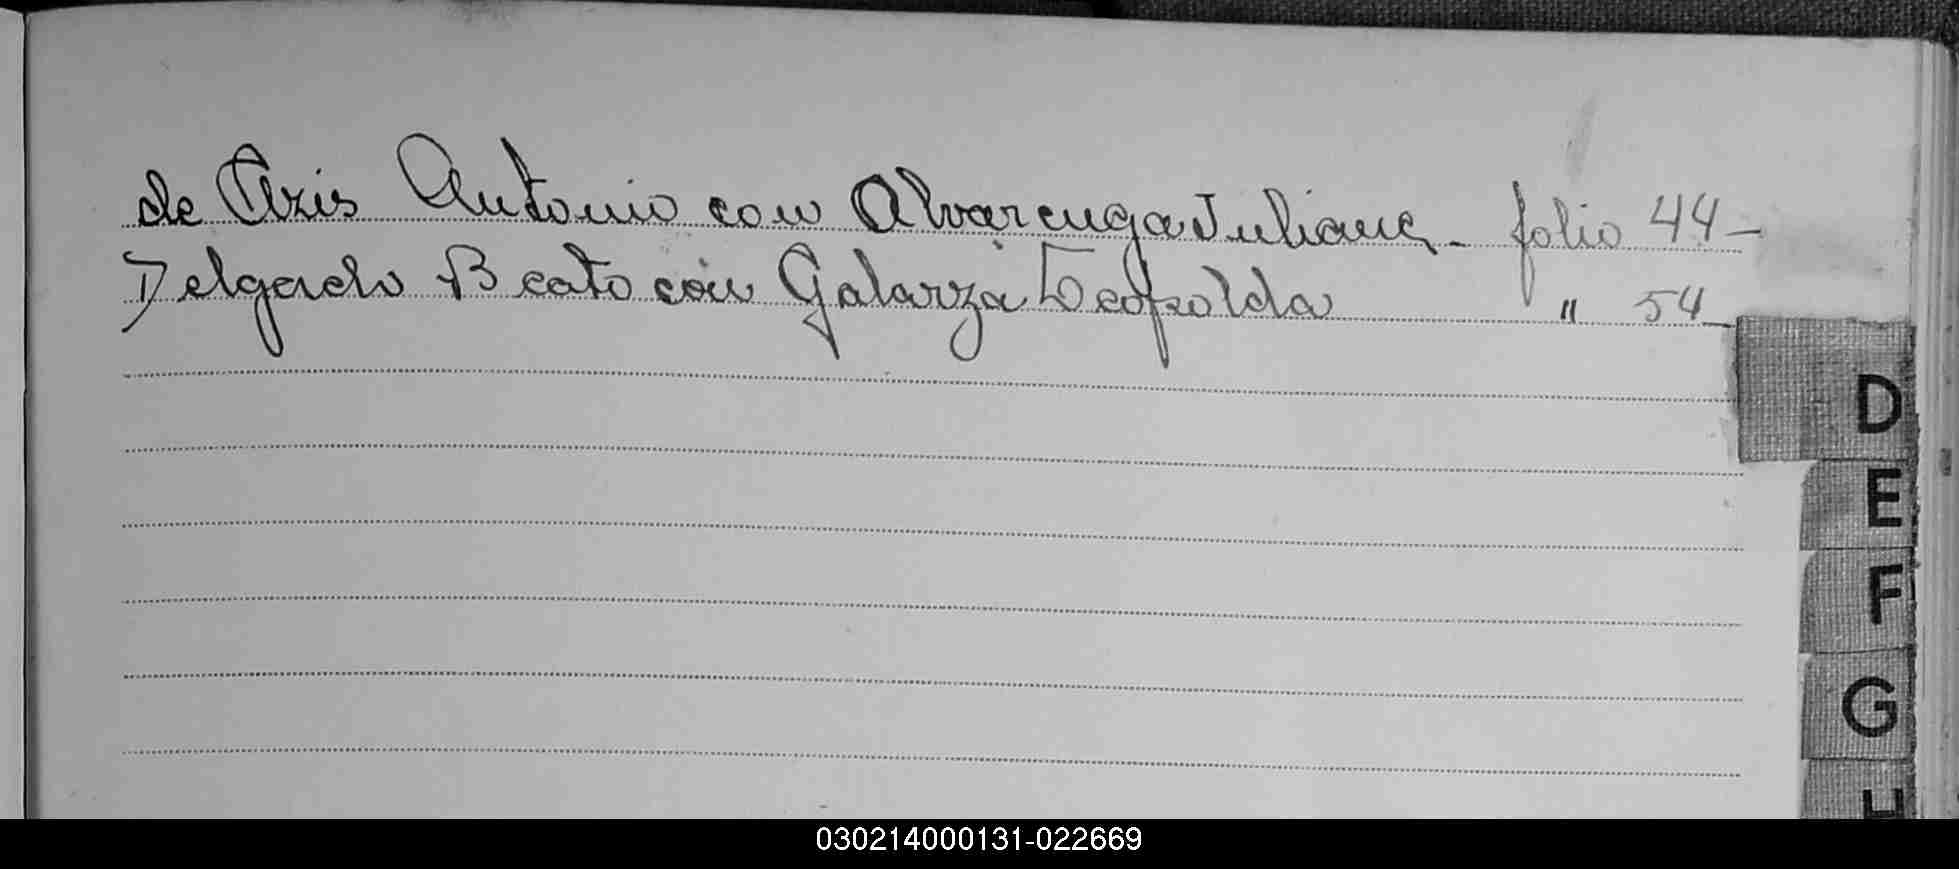 de Azis Antonio con Alvarenga Juliana - folio 44 -
Delgado Beato con Galarza Leopolda " 54
D
E
F
G
H
030214000131-022669